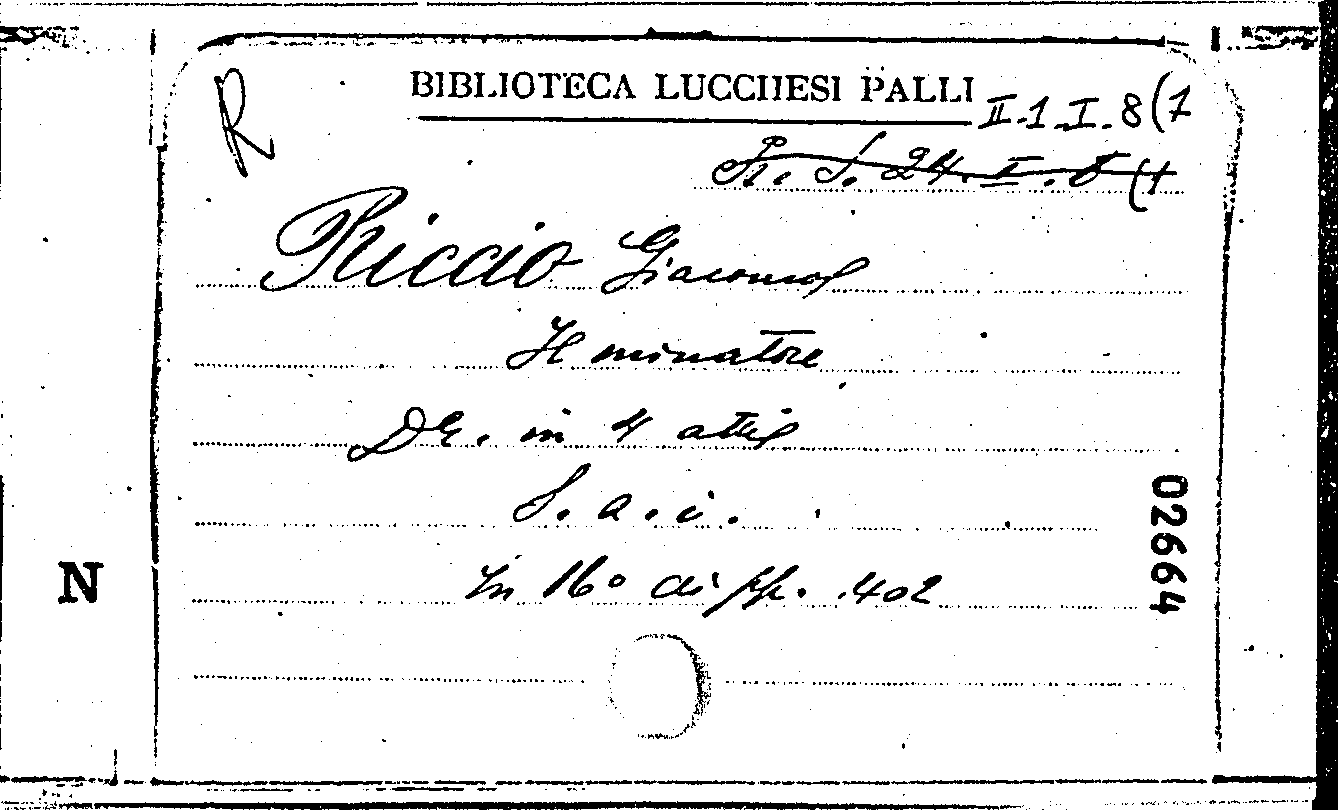 R
BIBLIOTECA LUCCHESI PALLI
II.1.I.8(1
24.I.8(1
Riccio Giacomo
Il minatore
Dr. in 4 atti
S.a.i.
In 16° di pp. 402
02664
N